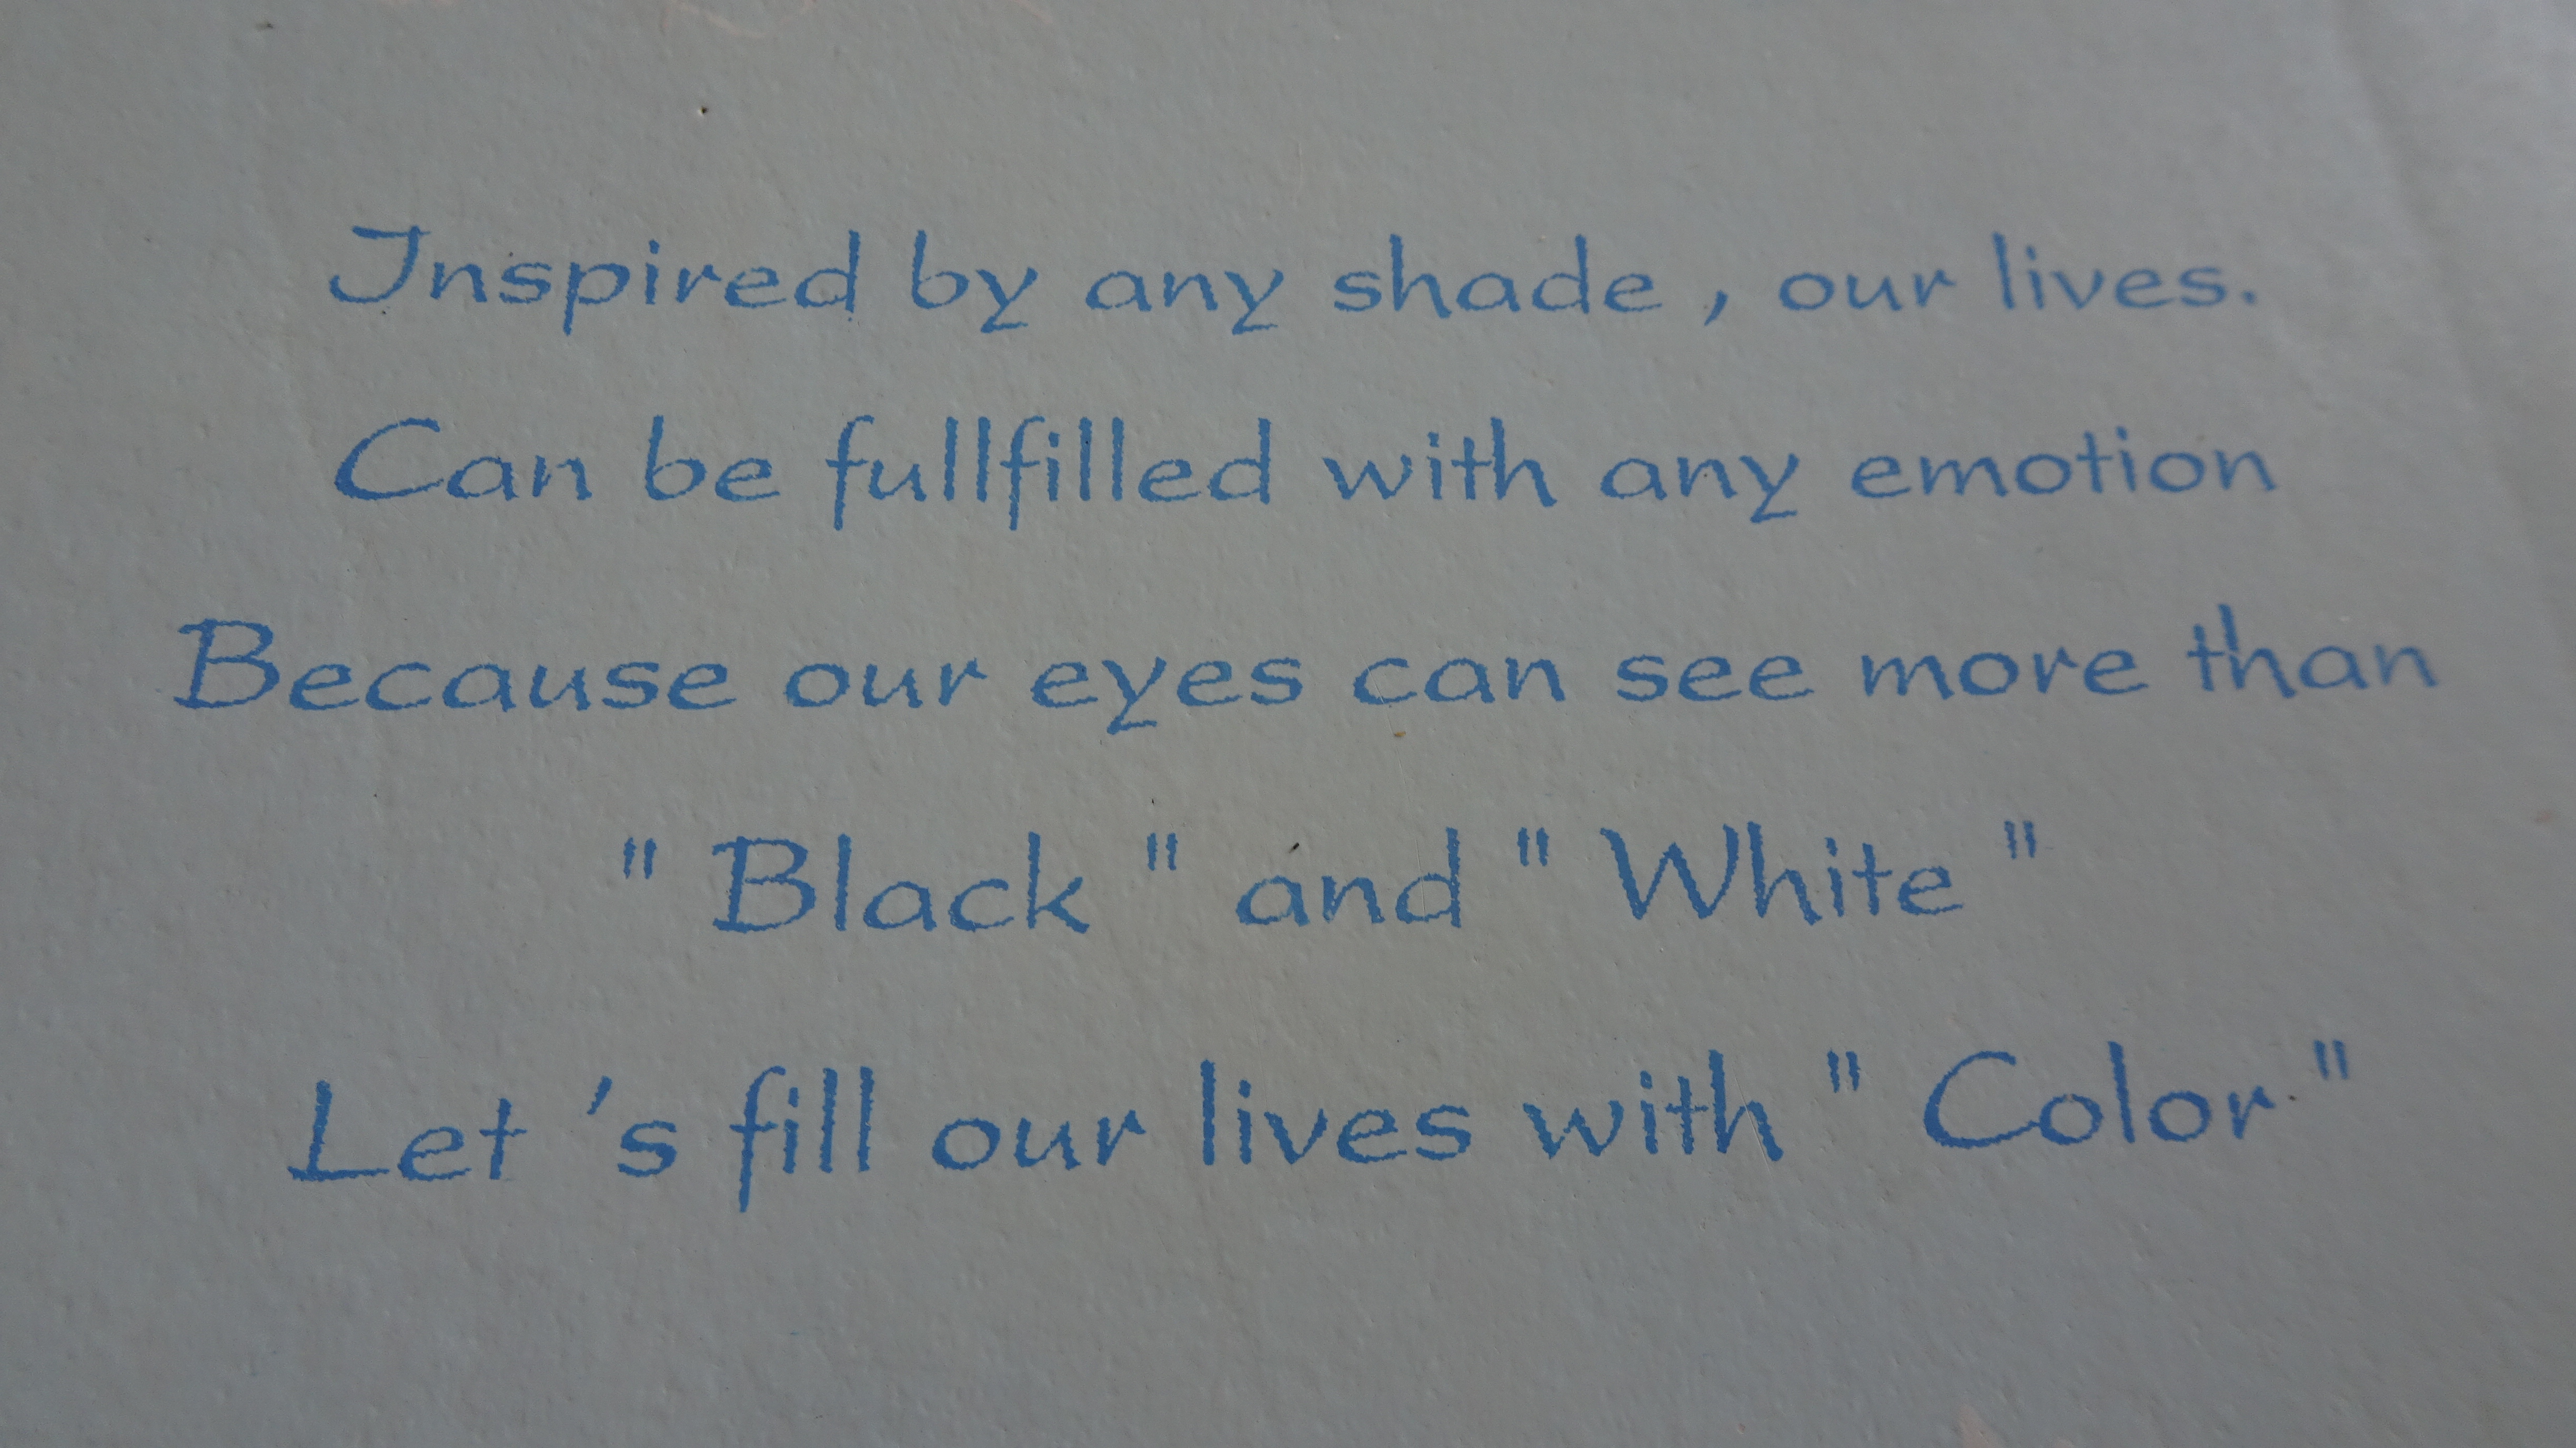 Inspired by any shade , our lives.
Can be fullfilled with any emotion
Because our eyes can see more than
" Black " and " White "
Let 's fill our lives with " Color "